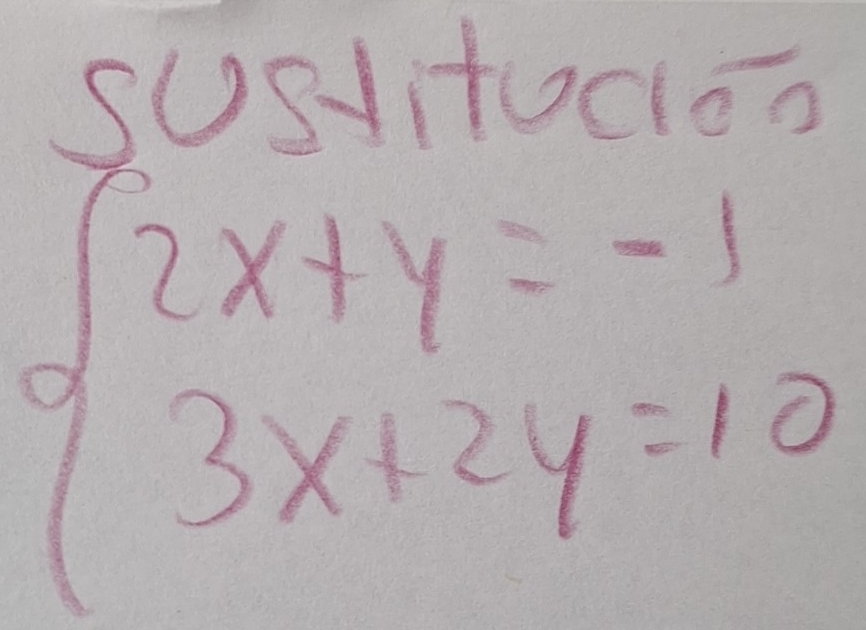 sustitución
2x+y=-1
3x+2y=10